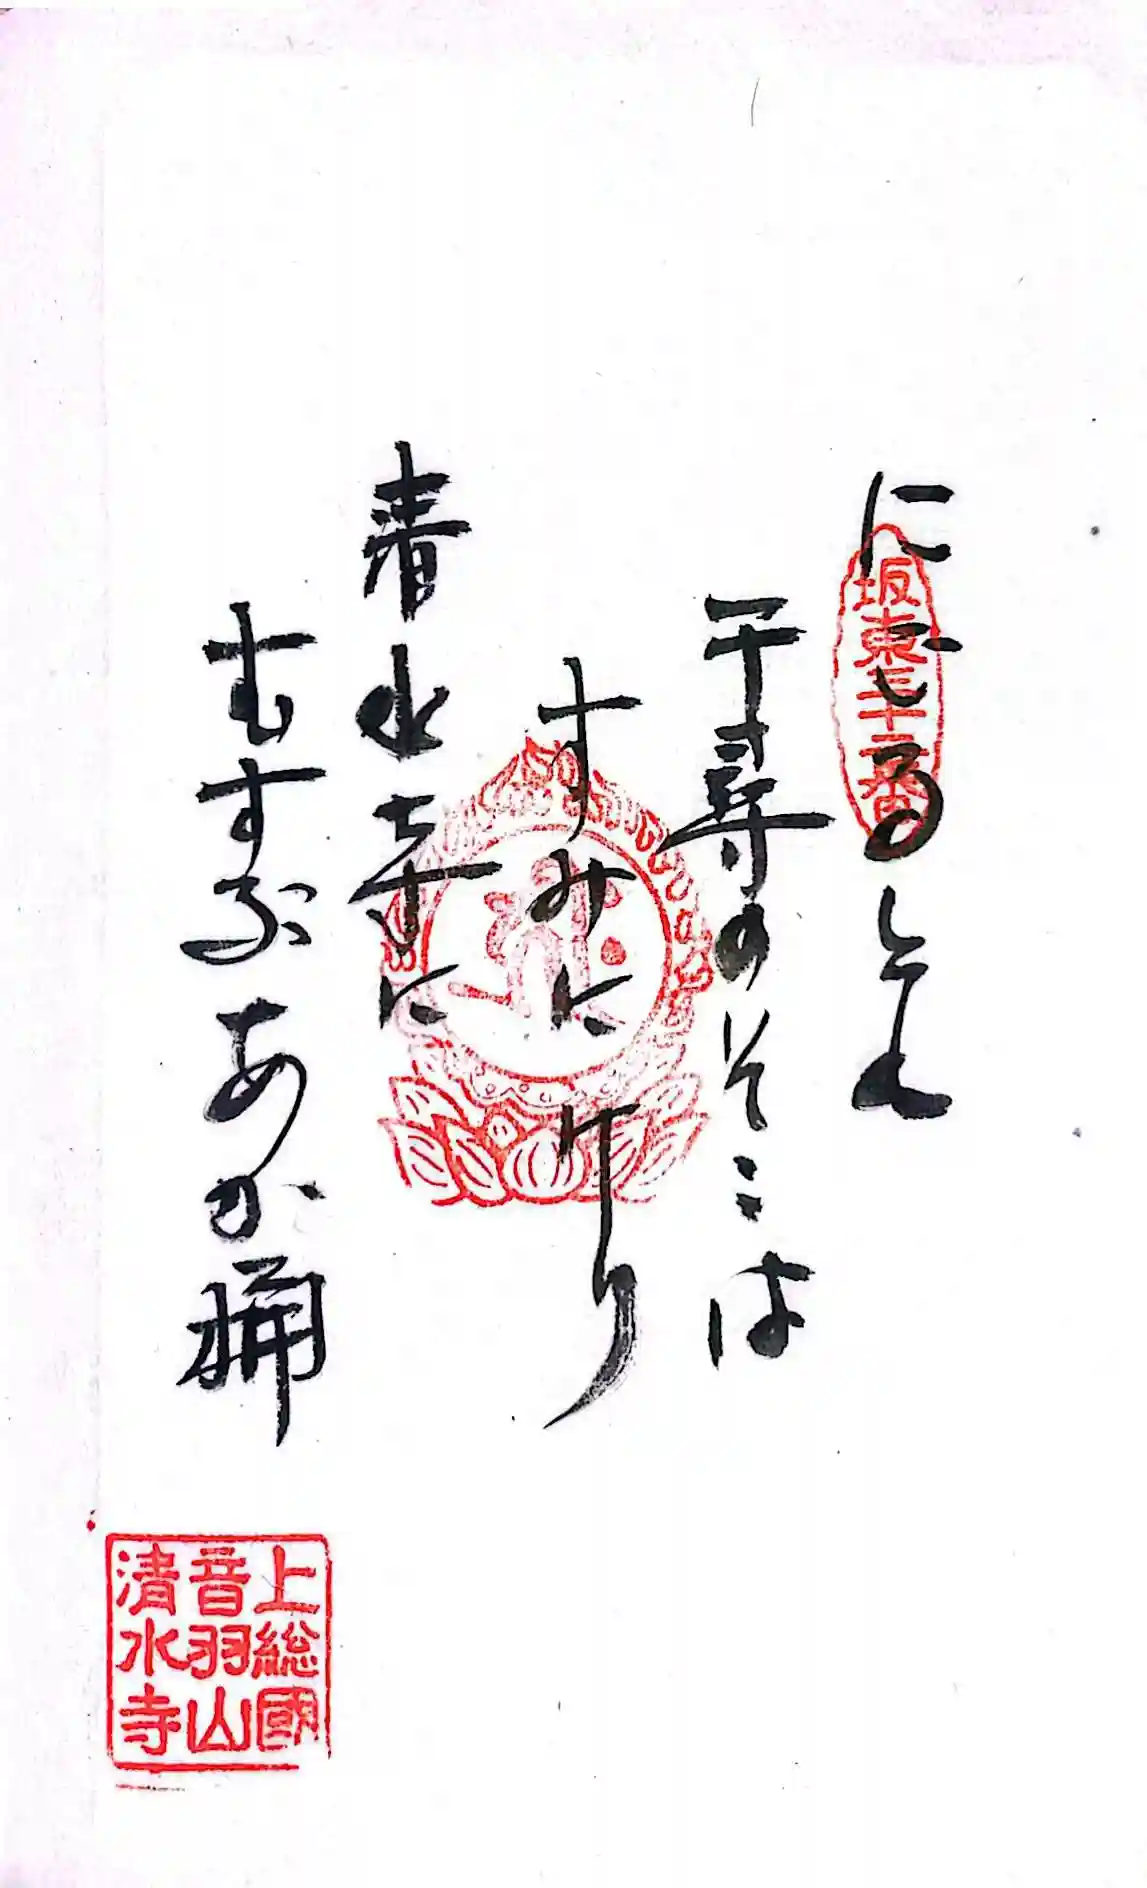 にごるとも
千尋のそこは
すみにけり
清水寺に
むすぶあか桶
坂東三十二番
上総國
音羽山
清水寺